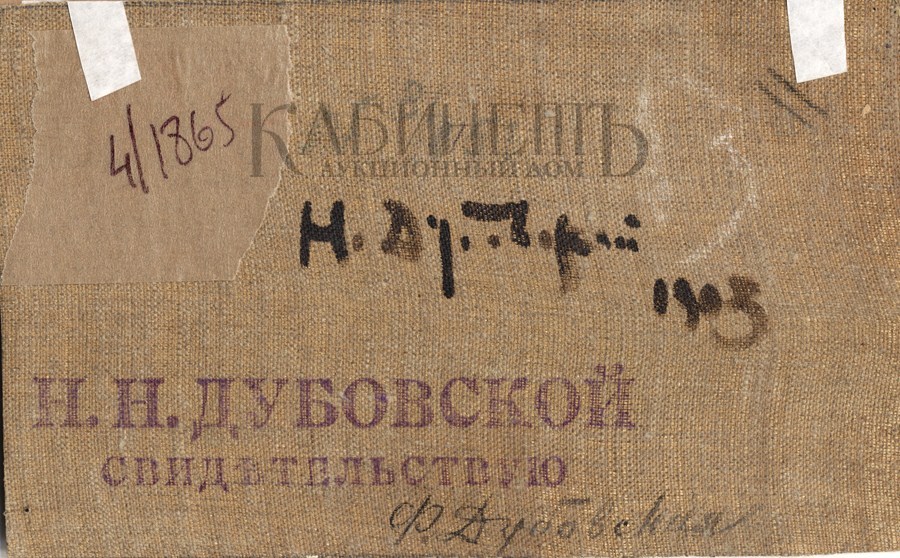 4/1865
КАБИНЕТЪ
АУКЦИОННЫЙ ДОМ
Н. Дубовской
1903
Н. Н. ДУБОВСКОЙ
СВИДѢТЕЛЬСТВУЮ
Ф. Дубовская